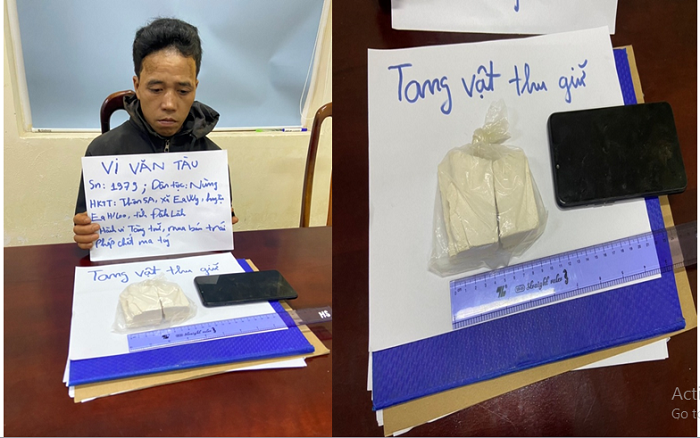 VI VĂN TÀU
Sn: 1979; Dân tộc: Nùng
HKTT: Thôn 5A, xã Ea Wy, huyện
Ea H'leo, tỉnh Đắk Lắk
Hành vi Tàng trữ, mua bán trái
Phép chất ma túy
Tang vật thu giữ
Tang vật thu giữ
Straight ruler
Acti
Go t